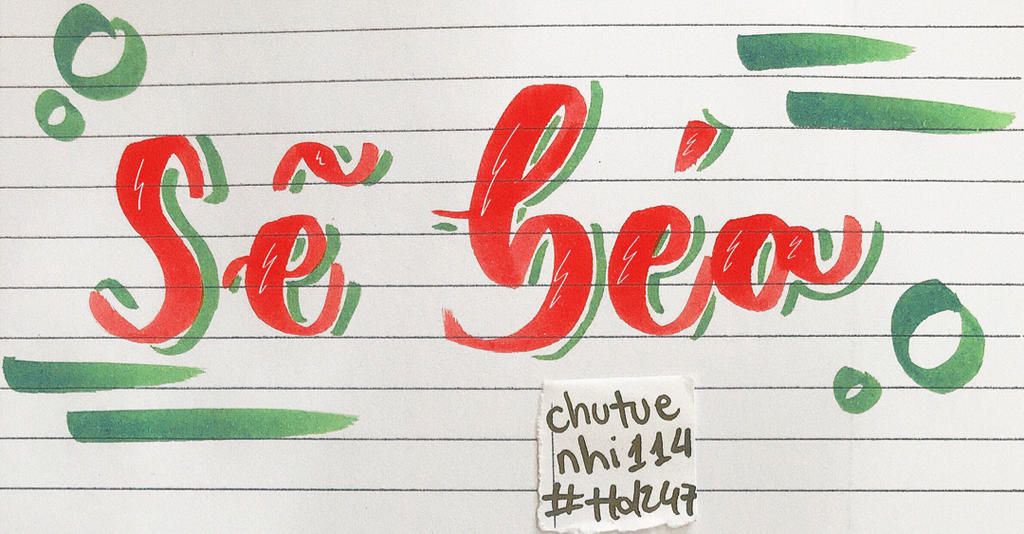 Sẽ béo
chutue
nhi114
#Hd247